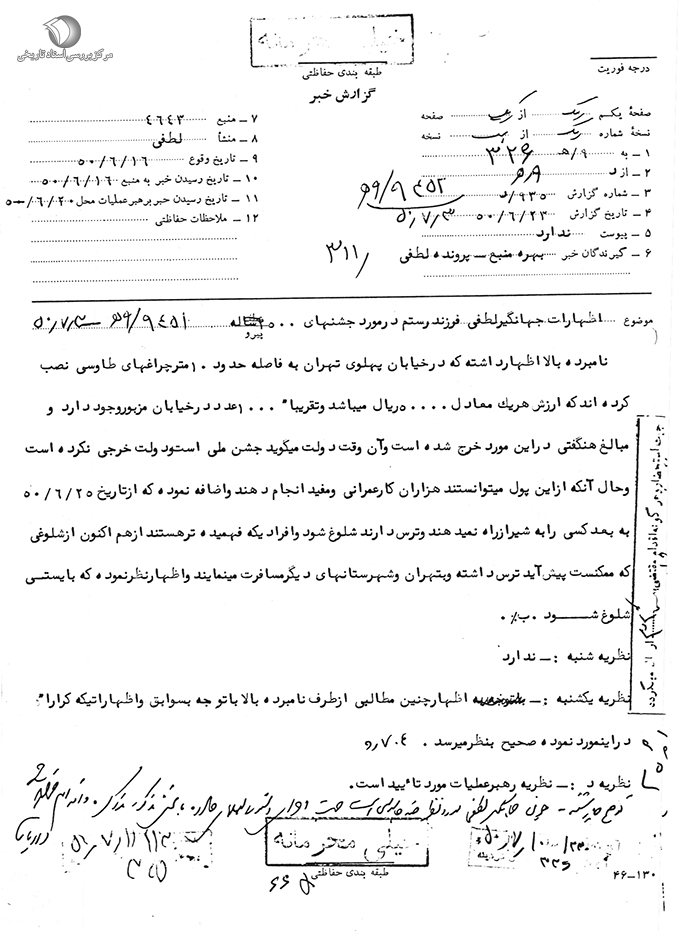 مرکز بررسی اسناد تاریخی
خیلی محرمانه
طبقه بندی حفاظتی
درجه فوریت
گزارش خبر
صفحهٔ یکم از یک صفحه
نسخهٔ شماره یک از یک نسخه
۱ – به ۹/هـ ۳۲۶
۲ – از د
۳ – شماره گزارش ۹۳۵/د
۴ – تاریخ گزارش ۵۰/۶/۲۳
۵ – پیوست ندارد
۶ – گیرندگان خبر بهره منبع – پرونده لطفی ۳۱۱/
۷ – منبع ۴۶۴۳
۸ – منشأ لطفی
۹ – تاریخ وقوع ۵۰/۶/۱۶
۱۰ – تاریخ رسیدن خبر به منبع ۵۰/۶/۱۶
۱۱ – تاریخ رسیدن خبر برهبر عملیات محل ۵۰/۶/۲۰
۱۲ – ملاحظات حفاظتی
۵۰/۷/۳
موضوع اظهارات جهانگیر لطفی فرزند رستم در مورد جشنهای ۲۵۰۰ ساله
پیرو ۵۰/۷/۳
نامبرده بالا اظهار داشته که در خیابان پهلوی تهران به فاصله حدود ۱۰ متر چراغهای طاوسی نصب
کرده اند که ارزش هریک معادل ۵۰۰۰۰ ریال میباشد و تقریبا" ۱۰۰۰ عدد در خیابان مزبور وجود دارد و
مبالغ هنگفتی در این مورد خرج شده است و آن وقت دولت میگوید جشن ملی است و دولت خرجی نکرده است
و حال آنکه از این پول میتوانستند هزاران کار عمرانی و مفید انجام دهند و اضافه نموده که از تاریخ ۵۰/۶/۲۵
به بعد کسی را به شیراز راه نمیدهند و ترس دارند شلوغ شود و افرادیکه فهمیده تر هستند از هم اکنون از شلوغی
که ممکنست پیش آید ترس داشته و بتهران و شهرستانهای دیگر مسافرت مینمایند و اظهار نظر نموده که بایستی
شلوغ شود . ب٪.
نظریه شنبه : – ندارد
نظریه یکشنبه : – اظهار چنین مطالبی از طرف نامبرده بالا با توجه بسوابق و اظهاراتیکه کرارا"
در اینمورد نموده صحیح بنظر میرسد .
نظریه د : – نظریه رهبر عملیات مورد تأیید است.
خیلی محرمانه
طبقه بندی حفاظتی
۴۶–۱۳۰